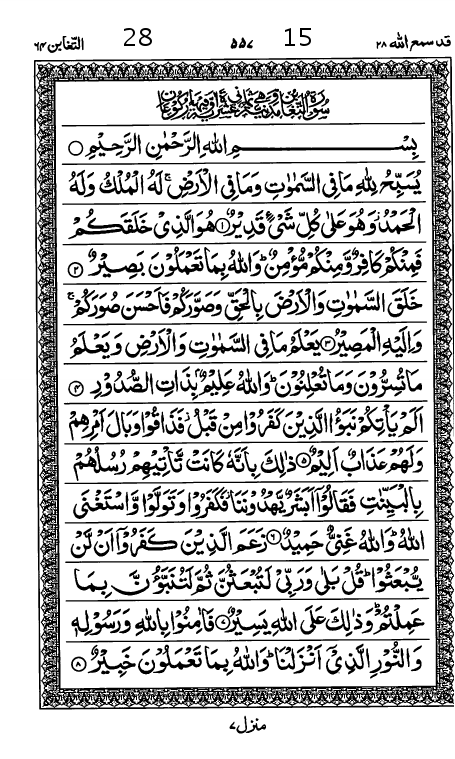 قد سمع الله ٢٨ 15 ٥٥٧ 28 التغابن ٦٤
بِسْمِ اللهِ الرَّحْمٰنِ الرَّحِيْمِ ○
يُسَبِّحُ لِلّٰهِ مَا فِى السَّمٰوٰتِ وَمَا فِى الْاَرْضِ ۚ لَهُ الْمُلْكُ وَلَهُ
الْحَمْدُ ۡ وَهُوَ عَلٰى كُلِّ شَىْءٍ قَدِيْرٌ ۝۱ هُوَ الَّذِىْ خَلَقَكُمْ
فَمِنْكُمْ كَافِرٌ وَّمِنْكُمْ مُّؤْمِنٌ ؕ وَاللهُ بِمَا تَعْمَلُوْنَ بَصِيْرٌ ۝۲
خَلَقَ السَّمٰوٰتِ وَالْاَرْضَ بِالْحَقِّ وَصَوَّرَكُمْ فَاَحْسَنَ صُوَرَكُمْ ۚ
وَاِلَيْهِ الْمَصِيْرُ ۝۳ يَعْلَمُ مَا فِى السَّمٰوٰتِ وَالْاَرْضِ وَيَعْلَمُ
مَا تُسِرُّوْنَ وَمَا تُعْلِنُوْنَ ؕ وَاللهُ عَلِيْمٌۢ بِذَاتِ الصُّدُوْرِ ۝۴
اَلَمْ يَاْتِكُمْ نَبَؤُا الَّذِيْنَ كَفَرُوْا مِنْ قَبْلُ ؗ فَذَاقُوْا وَبَالَ اَمْرِهِمْ
وَلَهُمْ عَذَابٌ اَلِيْمٌ ۝۵ ذٰلِكَ بِاَنَّهٗ كَانَتْ تَّاْتِيْهِمْ رُسُلُهُمْ
بِالْبَيِّنٰتِ فَقَالُوْۤا اَبَشَرٌ يَّهْدُوْنَنَا ؗ فَكَفَرُوْا وَتَوَلَّوْا وَّاسْتَغْنَى
اللهُ ؕ وَاللهُ غَنِىٌّ حَمِيْدٌ ۝۶ زَعَمَ الَّذِيْنَ كَفَرُوْۤا اَنْ لَّنْ
يُّبْعَثُوْا ؕ قُلْ بَلٰى وَرَبِّىْ لَتُبْعَثُنَّ ثُمَّ لَتُنَبَّؤُنَّ بِمَا
عَمِلْتُمْ ؕ وَذٰلِكَ عَلَى اللهِ يَسِيْرٌ ۝۷ فَاٰمِنُوْا بِاللهِ وَرَسُوْلِهٖ
وَالنُّوْرِ الَّذِىْۤ اَنْزَلْنَا ؕ وَاللهُ بِمَا تَعْمَلُوْنَ خَبِيْرٌ ۝۸
منزل ٧